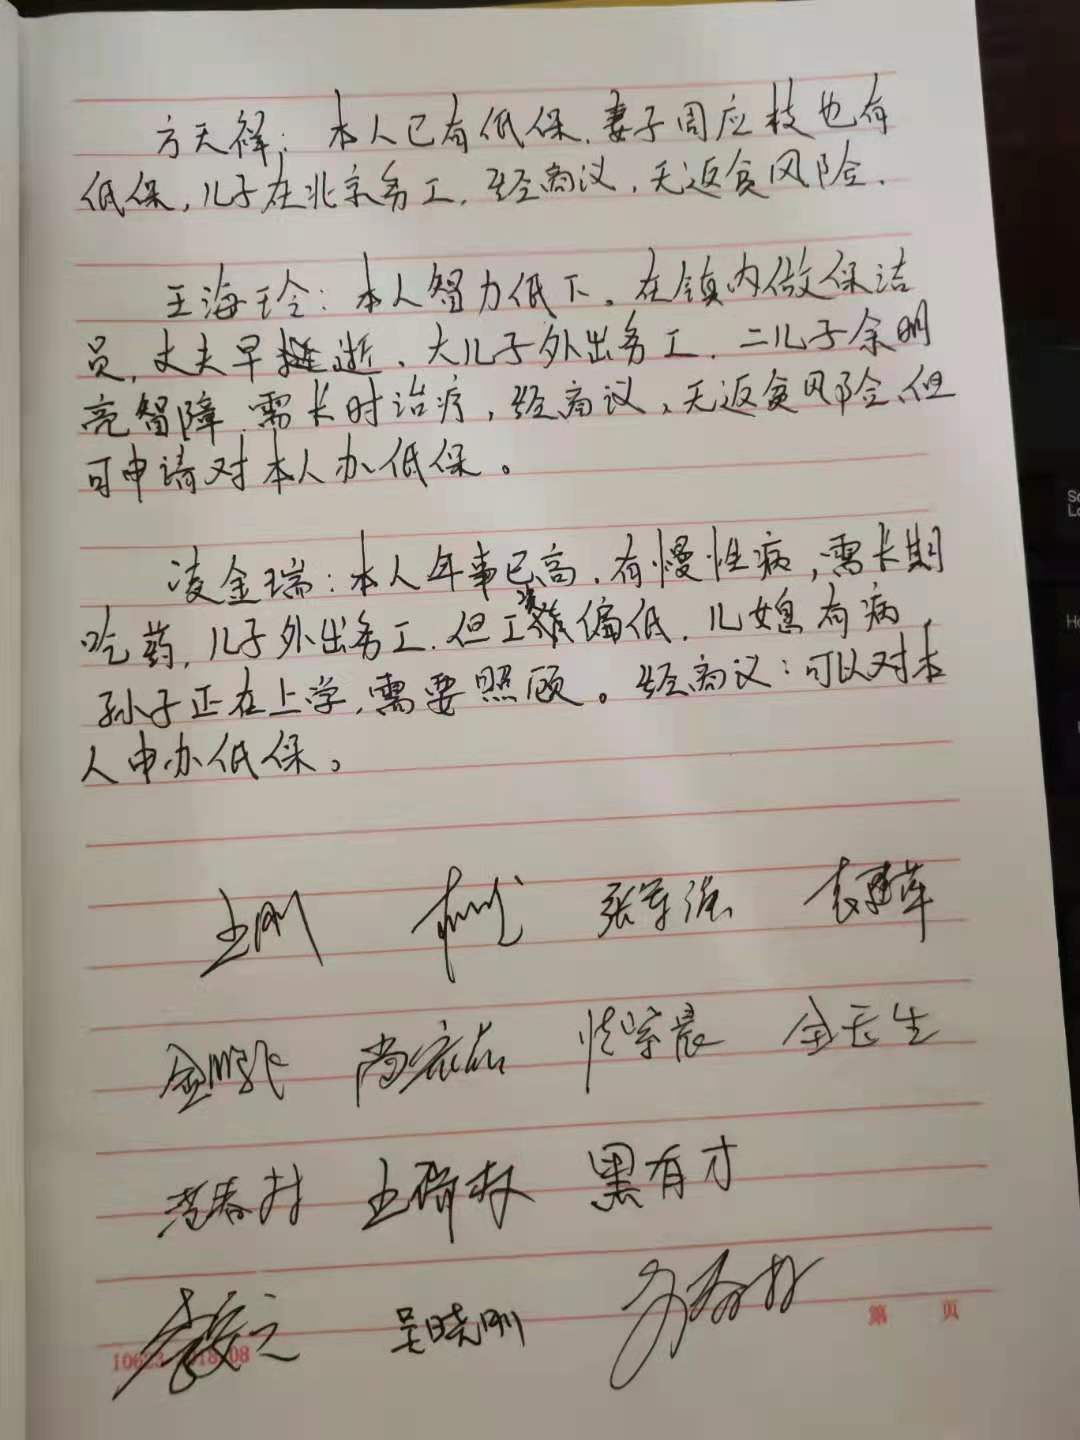 方天祥：本人已有低保，妻子周应枝也有
低保，儿子在北京务工，经商议，无返贫风险．
王海玲：本人智力低下，在镇内做保洁
员，丈夫早逝，大儿子外出务工，二儿子余明
亮智障，需长时治疗，经商议，无返贫风险，但
可申请对本人办低保。
凌金瑞：本人年事已高，有慢性病，需长期
吃药，儿子外出务工，但工资偏低，儿媳有病，
孙子正在上学，需要照顾。经商议：可以对本
人申办低保。
王刚 张军强
金长生
黑有才
吴晓刚
第 页